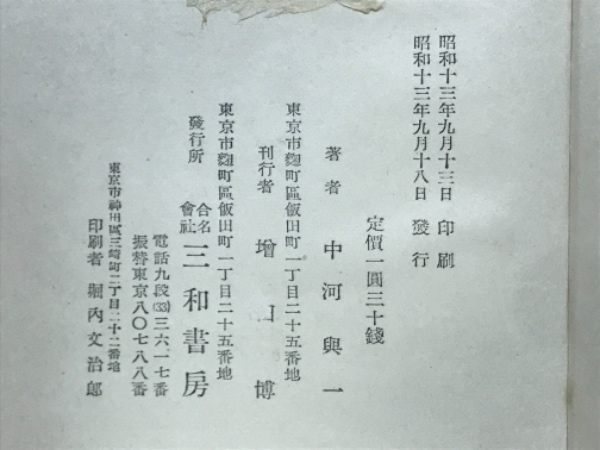 昭和十三年九月十三日 印刷
昭和十三年九月十八日 發行
定價一圓三十錢
著者 中河與一
東京市麴町區飯田町一丁目二十五番地
刊行者 增口博
東京市麴町區飯田町一丁目二十五番地
發行所 合名會社 三和書房
電話九段(33)三六一七番
振替東京八〇七八八番
東京市神田區三崎町二丁目二十二番地
印刷者 堀內文治郎